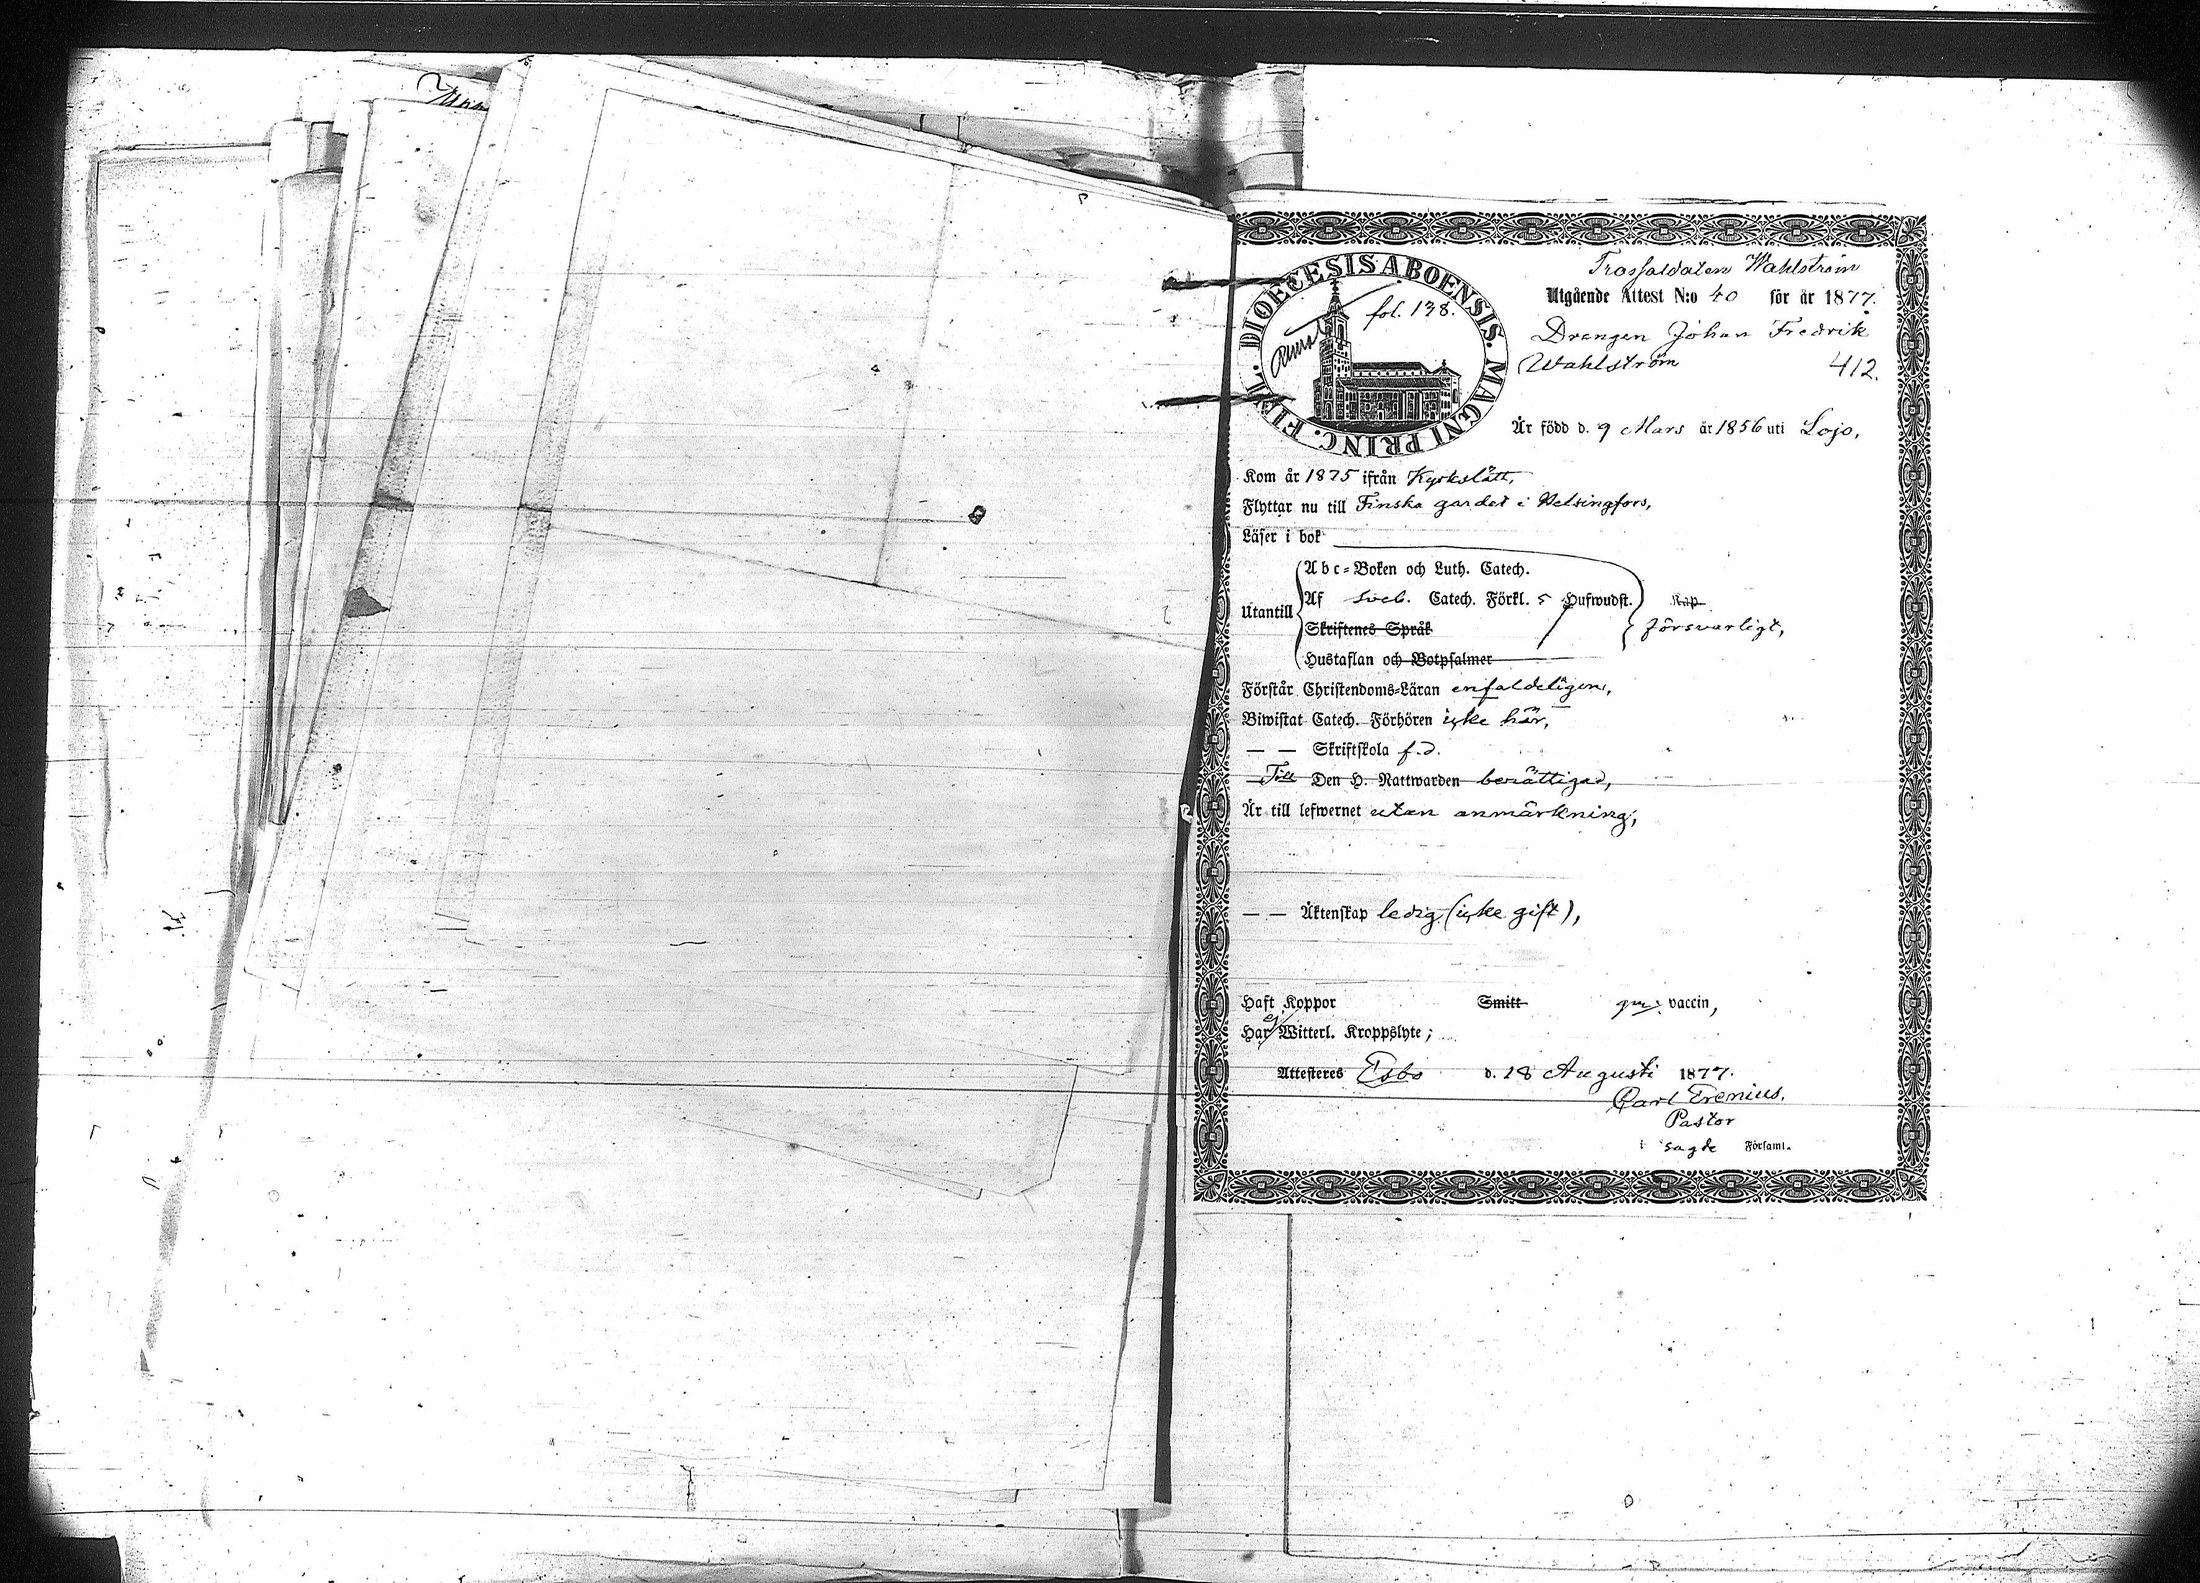 DIOECESIS ABOENSIS. MAGNI PRINC. FINL.
fol. 138.
Trossoldaten Wahlström
Utgående Attest N:o 40 för år 1877.
Drengen Johan Fredrik
Wahlström 412.
Är född d. 9 Mars år 1856 uti Lojo,
Kom år 1875 ifrån Kyrkslätt,
Flyttar nu till Finska gardet i Helsingfors,
Läser i bok
Abc-Boken och Luth. Catech.
Utantill Af Sveb. Catech. Förkl. 5 Hufwudst. Kap
Skriftenes Språk försvarligt,
Hustaflan och Botpsalmer
Förstår Christendoms-Läran enfaldeligen,
Biwistat Catech. Förhören icke här,
— — Skriftskola f. d.
Till Den H. Nattwarden berättigad,
Är till lefwernet utan anmärkning,
— — Äktenskap ledig (icke gift),
Haft Koppor Smitt gm. vaccin,
Har ej Witterl. Kroppslyte;
Attesteres Esbo d. 18 Augusti 1877.
Carl Trenius.
Pastor
i sagde Församl.